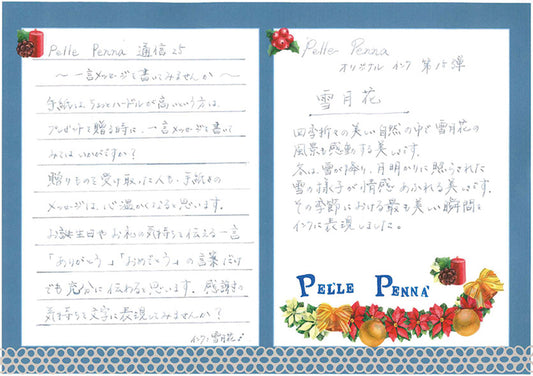 Pelle Penna 通信25
～一言メッセージを書いてみませんか～
手紙はちょっとハードルが高いという方は、
プレゼントを贈る時に、一言メッセージを書いて
みてはいかがですか？
贈りものを受け取った人も、手書きの
メッセージは、心温かくなると思います。
お誕生日やお礼の気持ちを伝える一言
「ありがとう」「おめでとう」の言葉だけ
でも充分に伝わると思います。感謝の
気持ちを文字に表現してみませんか？
インク：雪月花
Pelle Penna
オリジナルインク 第15弾
雪月花
四季折々の美しい自然の中で雪月花の
風景も感動する美しさです。
冬は、雪が降り、月明かりに照らされた
雪の様子が情感あふれる美しさです。
その季節における最も美しい瞬間を
インクに表現しました。
PELLE PENNA